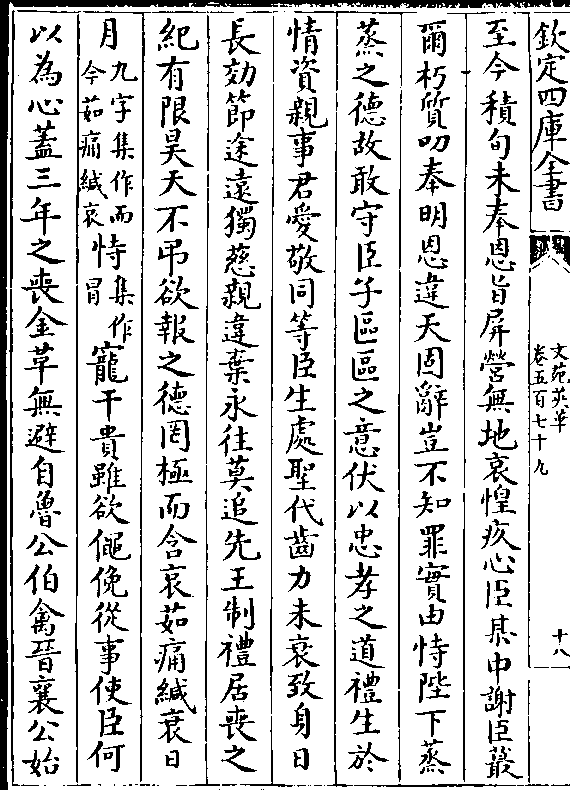 欽定四庫全書
文苑英華
卷五百七十九
十八
至今積旬未奉恩旨屏營無地哀惶疚心臣某中謝臣叢
爾朽質叨奉明恩違天固辭豈不知罪實由恃陛下蒸
蒸之德故敢守臣子區區之意伏以忠孝之道禮生於
情資親事君愛敬同等臣生處聖代齒力未衰致身日
長効節途遠獨慈親違棄永往莫追先王制禮居喪之
紀有限昊天不弔欲報之德罔極而含哀茹痛緘哀日
月九字集作而今茹痛緘哀恃集作冒寵干貴雖欲僶俛從事使臣何
以為心蓋三年之喪金革無避自魯公伯禽晉襄公始